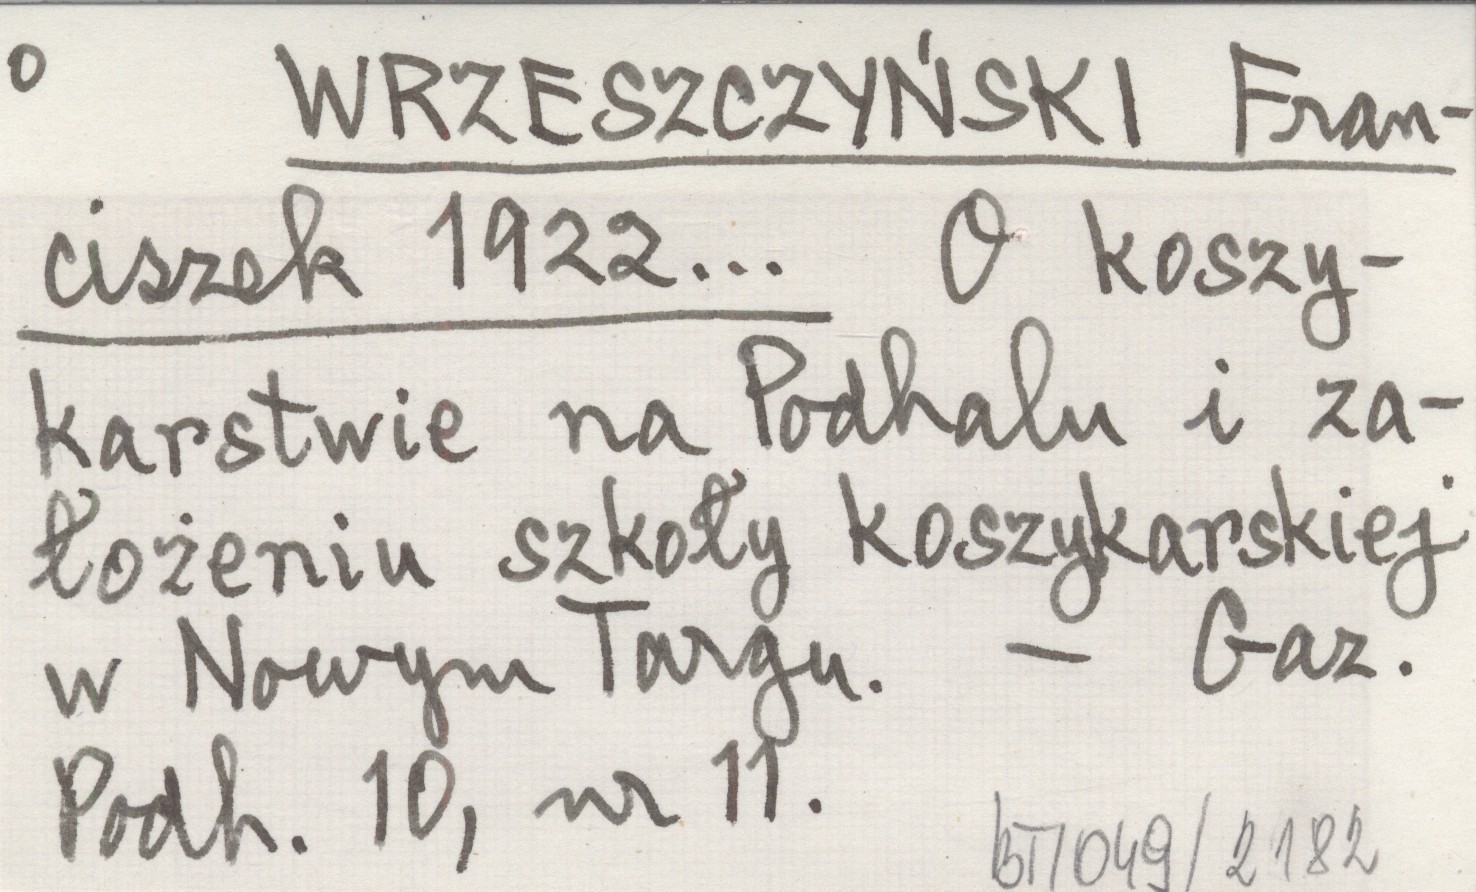 o WRZESZCZYŃSKI Fran-
ciszek 1922... O koszy-
karstwie na Podhalu i za-
łożeniu szkoły koszykarskiej
w Nowym Targu. — Gaz.
Podh. 10, nr 11.
BT/049/2182